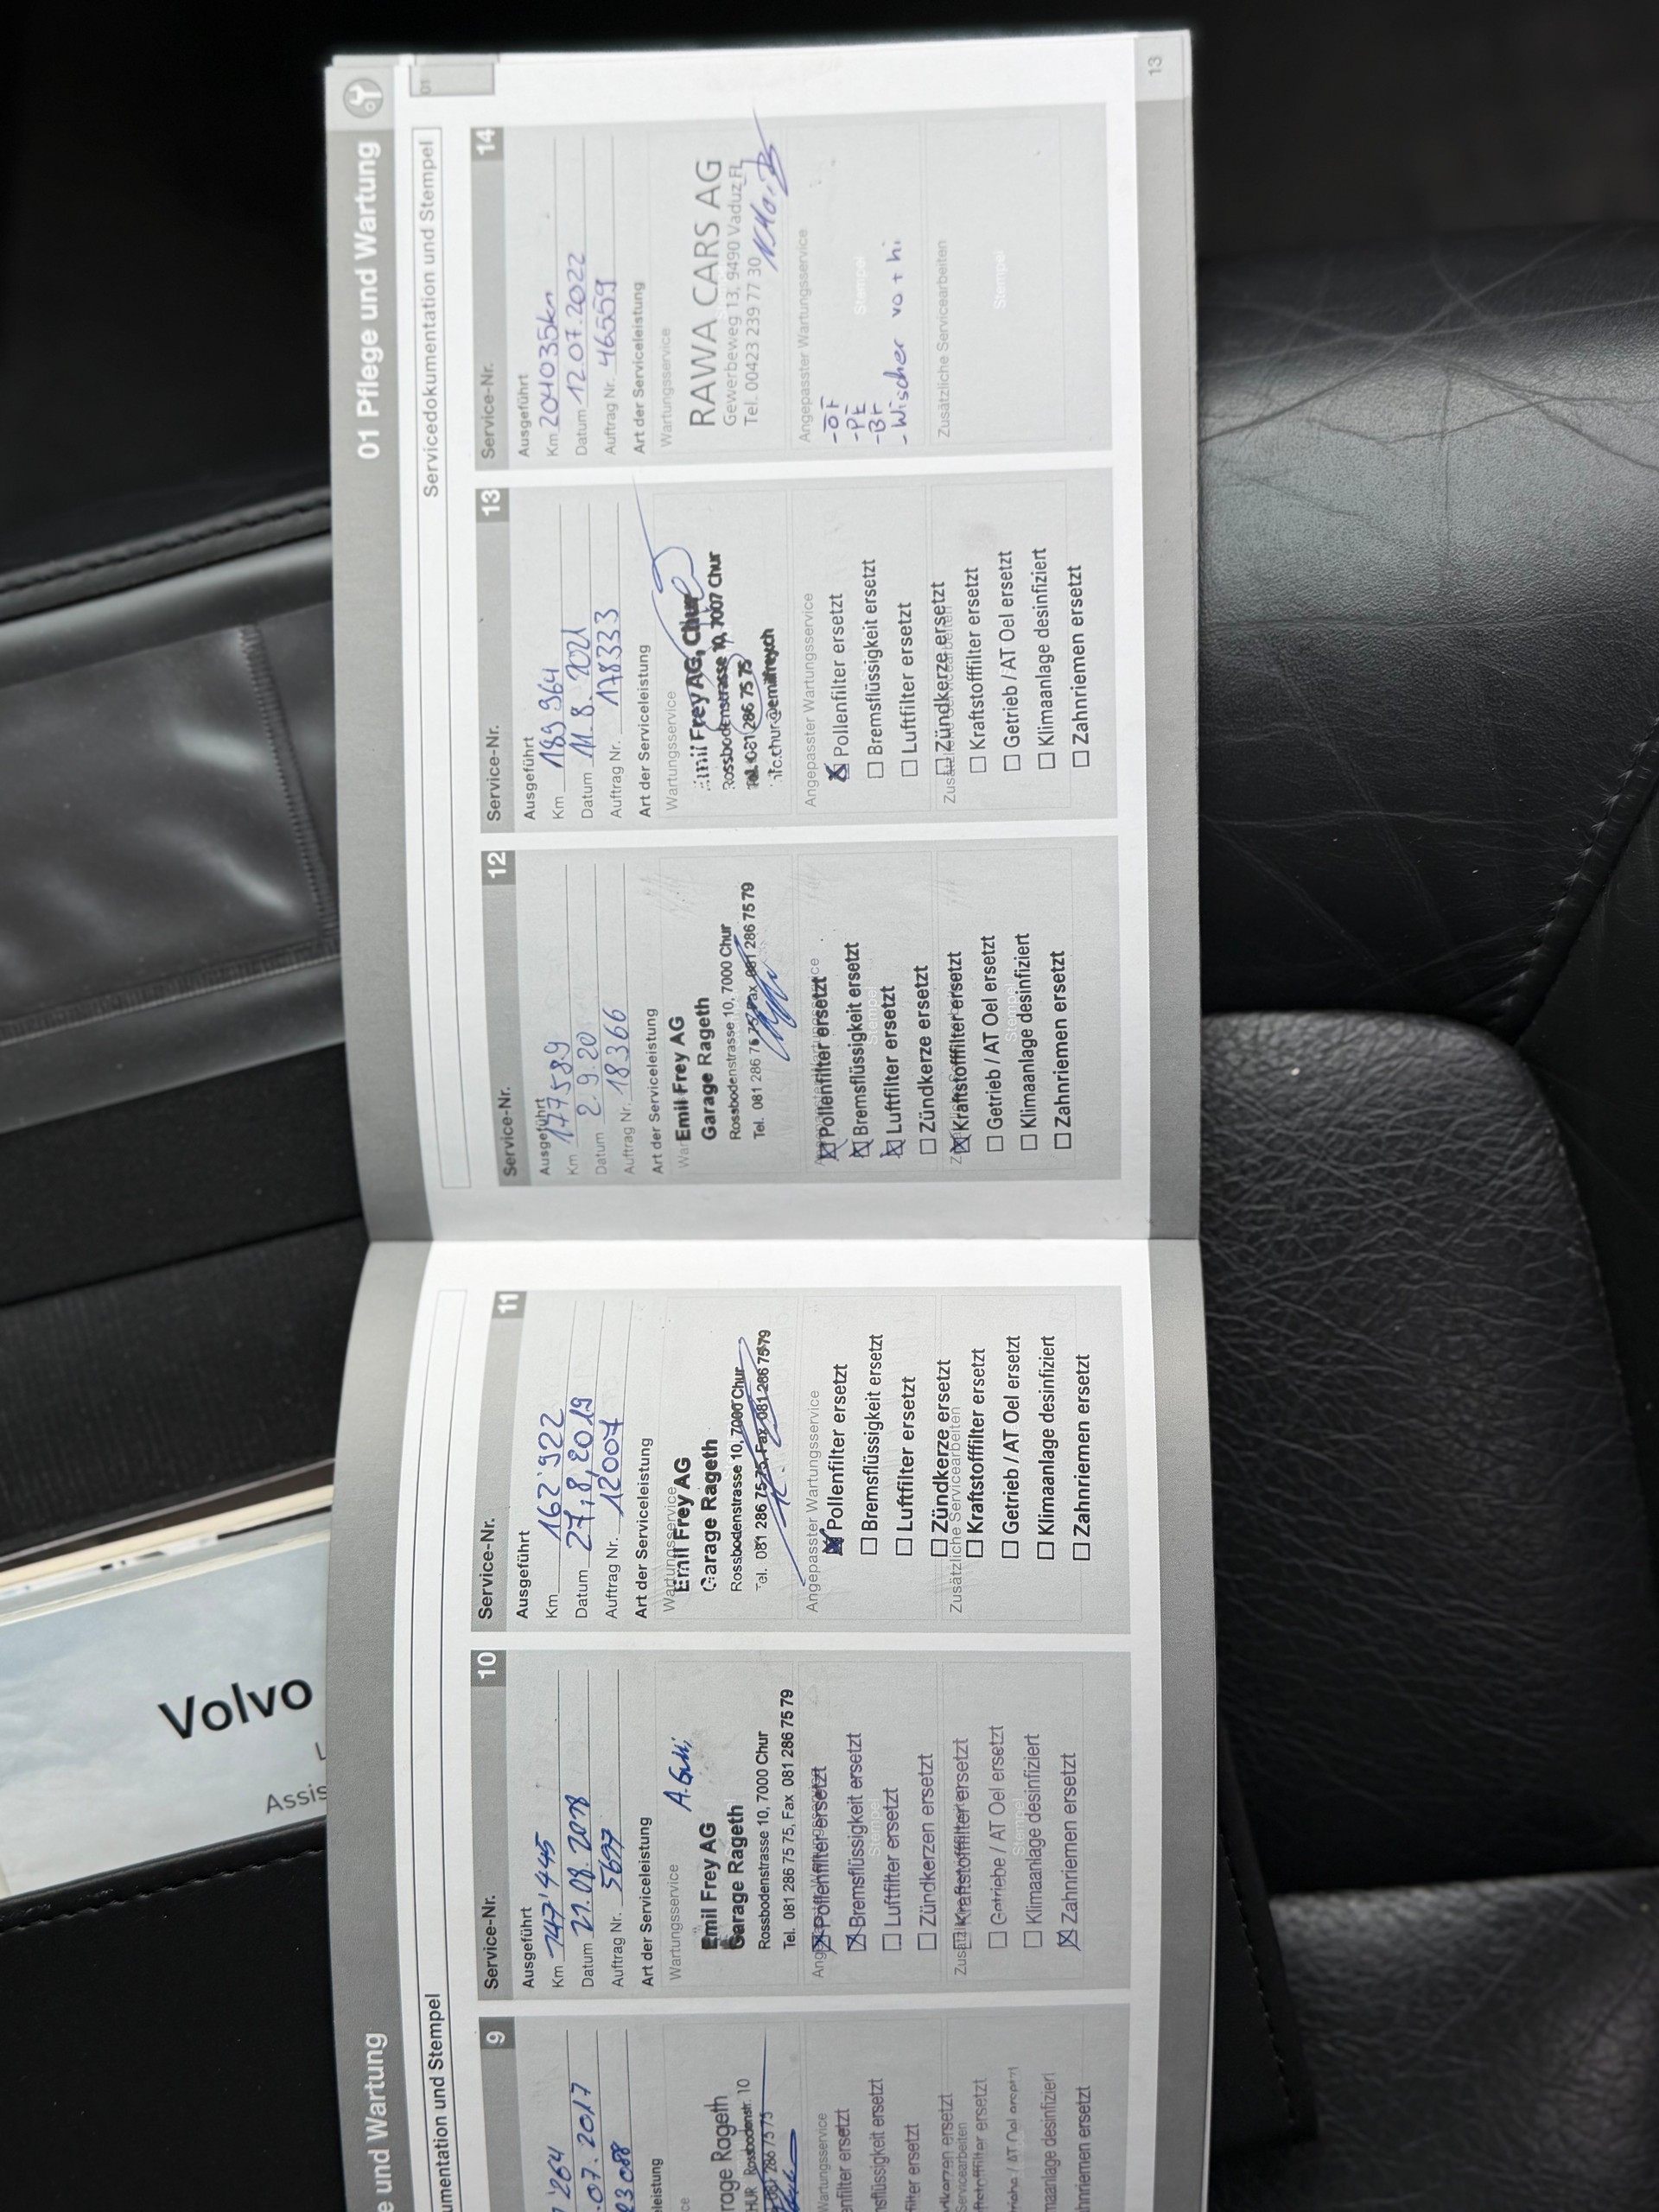 e und Wartung
umentation und Stempel
9
'264
.07.2017
23088
leistung
rage Rageth
Rossbodenstr. 10
286 75 75
Wartungsservice
enfilter ersetzt
nsflüssigkeit ersetzt
filter ersetzt
dkerzen ersetzt
Servicearbeiten
ftstofffilter ersetzt
maanlage desinfiziert
hnriemen ersetzt
Service-Nr. 10
Ausgeführt
Km 147'445
Datum 21.08.2018
Auftrag Nr. 5697
Art der Serviceleistung
Wartungsservice
Emil Frey AG
Garage Rageth
Rossbodenstrasse 10, 7000 Chur
Tel. 081 286 75 75, Fax 081 286 75 79
☒ Pollenfilter ersetzt
☒ Bremsflüssigkeit ersetzt
Stempel
☐ Luftfilter ersetzt
☐ Zündkerzen ersetzt
☐ Kraftstofffilter ersetzt
☐ Getriebe / AT Oel ersetzt
Stempel
☐ Klimaanlage desinfiziert
☒ Zahnriemen ersetzt
Service-Nr. 11
Ausgeführt
Km 162'922
Datum 27,8,2019
Auftrag Nr. 12007
Art der Serviceleistung
Wartungsservice
Emil Frey AG
Garage Rageth
Rossbodenstrasse 10, 7000 Chur
Tel. 081 286 75 75, Fax 081 286 75 79
Angepasster Wartungsservice
☒ Pollenfilter ersetzt
☐ Bremsflüssigkeit ersetzt
☐ Luftfilter ersetzt
☐ Zündkerze ersetzt
Zusätzliche Servicearbeiten
☐ Kraftstofffilter ersetzt
☐ Getrieb / AT Oel ersetzt
☐ Klimaanlage desinfiziert
☐ Zahnriemen ersetzt
01 Pflege und Wartung
01
Servicedokumentation und Stempel
Service-Nr. 12
Ausgeführt
Km 177589
Datum 2.9.20
Auftrag Nr. 18366
Art der Serviceleistung
Emil Frey AG
Garage Rageth
Rossbodenstrasse 10, 7000 Chur
Tel. 081 286 75 75, Fax 081 286 75 79
☒ Pollenfilter ersetzt
☒ Bremsflüssigkeit ersetzt
Stempel
☒ Luftfilter ersetzt
☐ Zündkerze ersetzt
☒ Kraftstofffilter ersetzt
☐ Getrieb / AT Oel ersetzt
Stempel
☐ Klimaanlage desinfiziert
☐ Zahnriemen ersetzt
Service-Nr. 13
Ausgeführt
Km 189 964
Datum 11.8.2021
Auftrag Nr. 178333
Art der Serviceleistung
Wartungsservice
Frey AG, Chur
Rossbodenstrasse 10, 7007 Chur
Tel. 081 286 75 75
Angepasster Wartungsservice
☒ Pollenfilter ersetzt
☐ Bremsflüssigkeit ersetzt
☐ Luftfilter ersetzt
☐ Zündkerze ersetzt
☐ Kraftstofffilter ersetzt
☐ Getrieb / AT Oel ersetzt
☐ Klimaanlage desinfiziert
☐ Zahnriemen ersetzt
Service-Nr. 14
Ausgeführt
Km 204035km
Datum 12.07.2022
Auftrag Nr. 46559
Art der Serviceleistung
Wartungsservice
RAWA CARS AG
Gewerbeweg 13, 9490 Vaduz FL
Tel. 00423 239 77 30
Angepasster Wartungsservice
- ÖF
- PF
- BF
Stempel
- Wischer vo + hi
Zusätzliche Servicearbeiten
Stempel
13
Volvo
Assis